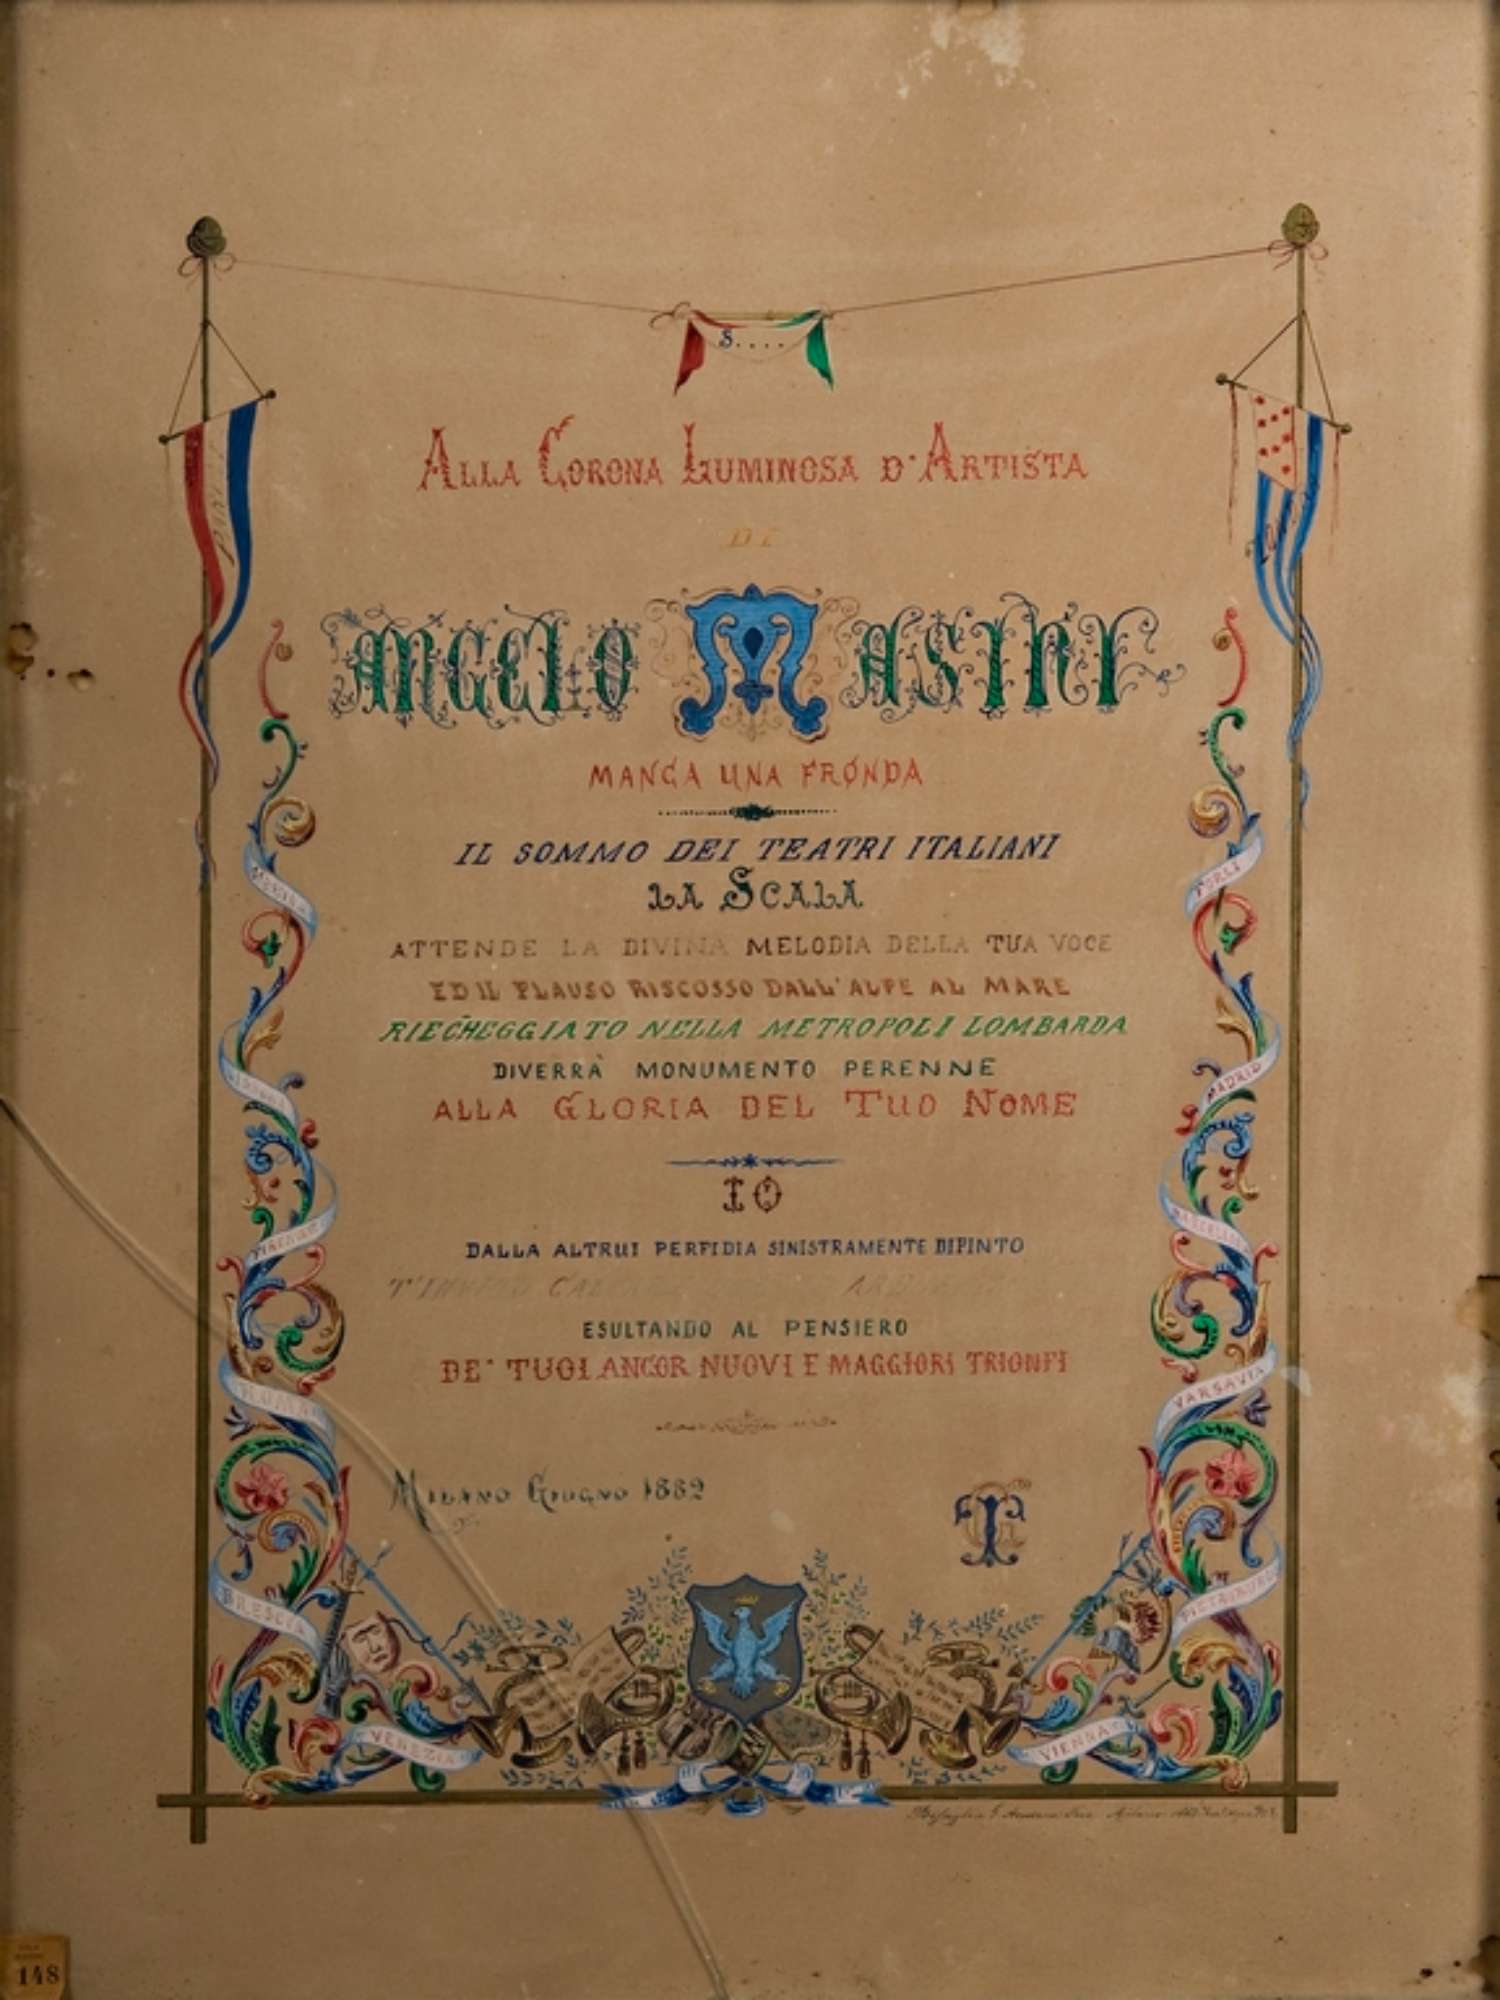 S....
ALLA CORONA LUMINOSA D'ARTISTA
DI
ANGELO MASINI
MANCA UNA FRONDA
IL SOMMO DEI TEATRI ITALIANI
LA SCALA
ATTENDE LA DIVINA MELODIA DELLA TUA VOCE
ED IL PLAUSO RISCOSSO DALL'ALPE AL MARE
RIECHEGGIATO NELLA METROPOLI LOMBARDA
DIVERRÀ MONUMENTO PERENNE
ALLA GLORIA DEL TUO NOME
IO
DALLA ALTRUI PERFIDIA SINISTRAMENTE DIPINTO
T'INVITO
ESULTANDO AL PENSIERO
DE' TUOI ANCOR NUOVI E MAGGIORI TRIONFI
MILANO GIUGNO 1882
ROMA
BRESCIA
VENEZIA
FORLÌ
MADRID
VARSAVIA
PIETROBURGO
VIENNA
148